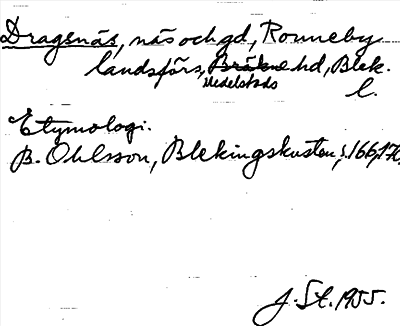 Dragsnäs, näs och gd, Ronneby
landsförs, Bräkne hd, Blek.
Medelstads
l.
Etymologi.
B. Ohlsson, Blekingskusten, s. 166, 170.
J. St. 1955.